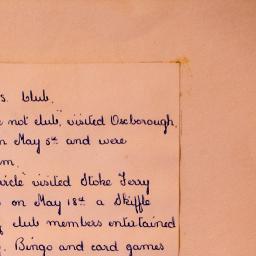 s. Club.
e not club", visited Oxborough,
n May 5th and were
m.
ircle" visited Stoke Ferry
on May 18th a Skiffle
g club members entertained
. Bingo and card games